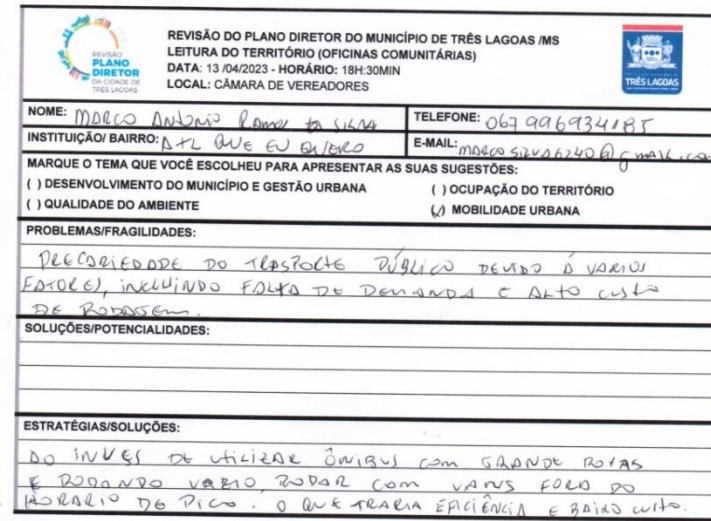 REVISÃO
PLANO
DIRETOR
DA CIDADE DE
TRÊS LAGOAS
REVISÃO DO PLANO DIRETOR DO MUNICÍPIO DE TRÊS LAGOAS /MS
LEITURA DO TERRITÓRIO (OFICINAS COMUNITÁRIAS)
DATA: 13 /04/2023 - HORÁRIO: 18H:30MIN
LOCAL: CÂMARA DE VEREADORES
TRÊS LAGOAS
NOME: MARCO ANTONIO RAMOS DA SILVA
TELEFONE: 067 996934185
INSTITUIÇÃO/ BAIRRO: A TL QUE EU QUERO
E-MAIL: MARCOSILVA6240@GMAIL.CO
MARQUE O TEMA QUE VOCÊ ESCOLHEU PARA APRESENTAR AS SUAS SUGESTÕES:
( ) DESENVOLVIMENTO DO MUNICÍPIO E GESTÃO URBANA
( ) OCUPAÇÃO DO TERRITÓRIO
( ) QUALIDADE DO AMBIENTE
(/) MOBILIDADE URBANA
PROBLEMAS/FRAGILIDADES:
PRECARIEDADE DO TRASPORTE PÚBLICO DEVIDO À VARIOS
FATORES, INCLUINDO FALTA DE DEMANDA E ALTO CUSTO
DE RODAGEM.
SOLUÇÕES/POTENCIALIDADES:
ESTRATÉGIAS/SOLUÇÕES:
AO INVES DE UTILIZAR ÔNIBUS COM GRANDE ROTAS
E RODANDO VAZIO, RODAR COM VANS FORA DO
HORARIO DE PICO. O QUE TRARIA EFICIÊNCIA E BAIXO CUSTO.